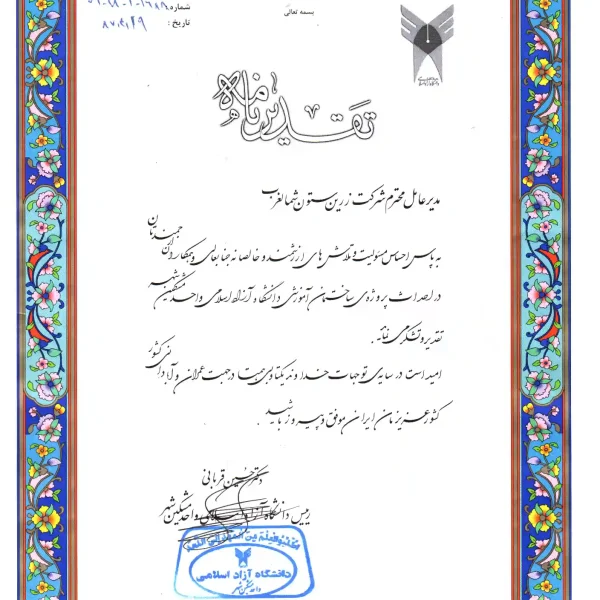 بسمه تعالی
شماره
تاریخ : ۸۷،۴،۲۹
تقدیرنامه
مدیرعامل محترم شرکت زرین ستون شمالغرب
به پاس احساس مسئولیت و تلاش های ارزشمند و خالصانه جنابعالی و همکاران
در احداث پروژه ی ساختمان آموزشی دانشگاه آزاد اسلامی واحد مشکین شهر
تقدیر و تشکر می نمائد.
امید است در سایه ی توجهات خداوند یکتا در جهت عمران و آبادانی کشور
کشور عزیزمان ایران موفق و پیروز باشید
دکتر حسین قربانی
رییس دانشگاه آزاد اسلامی واحد مشکین شهر
دانشگاه آزاد اسلامی
واحد مشکین شهر